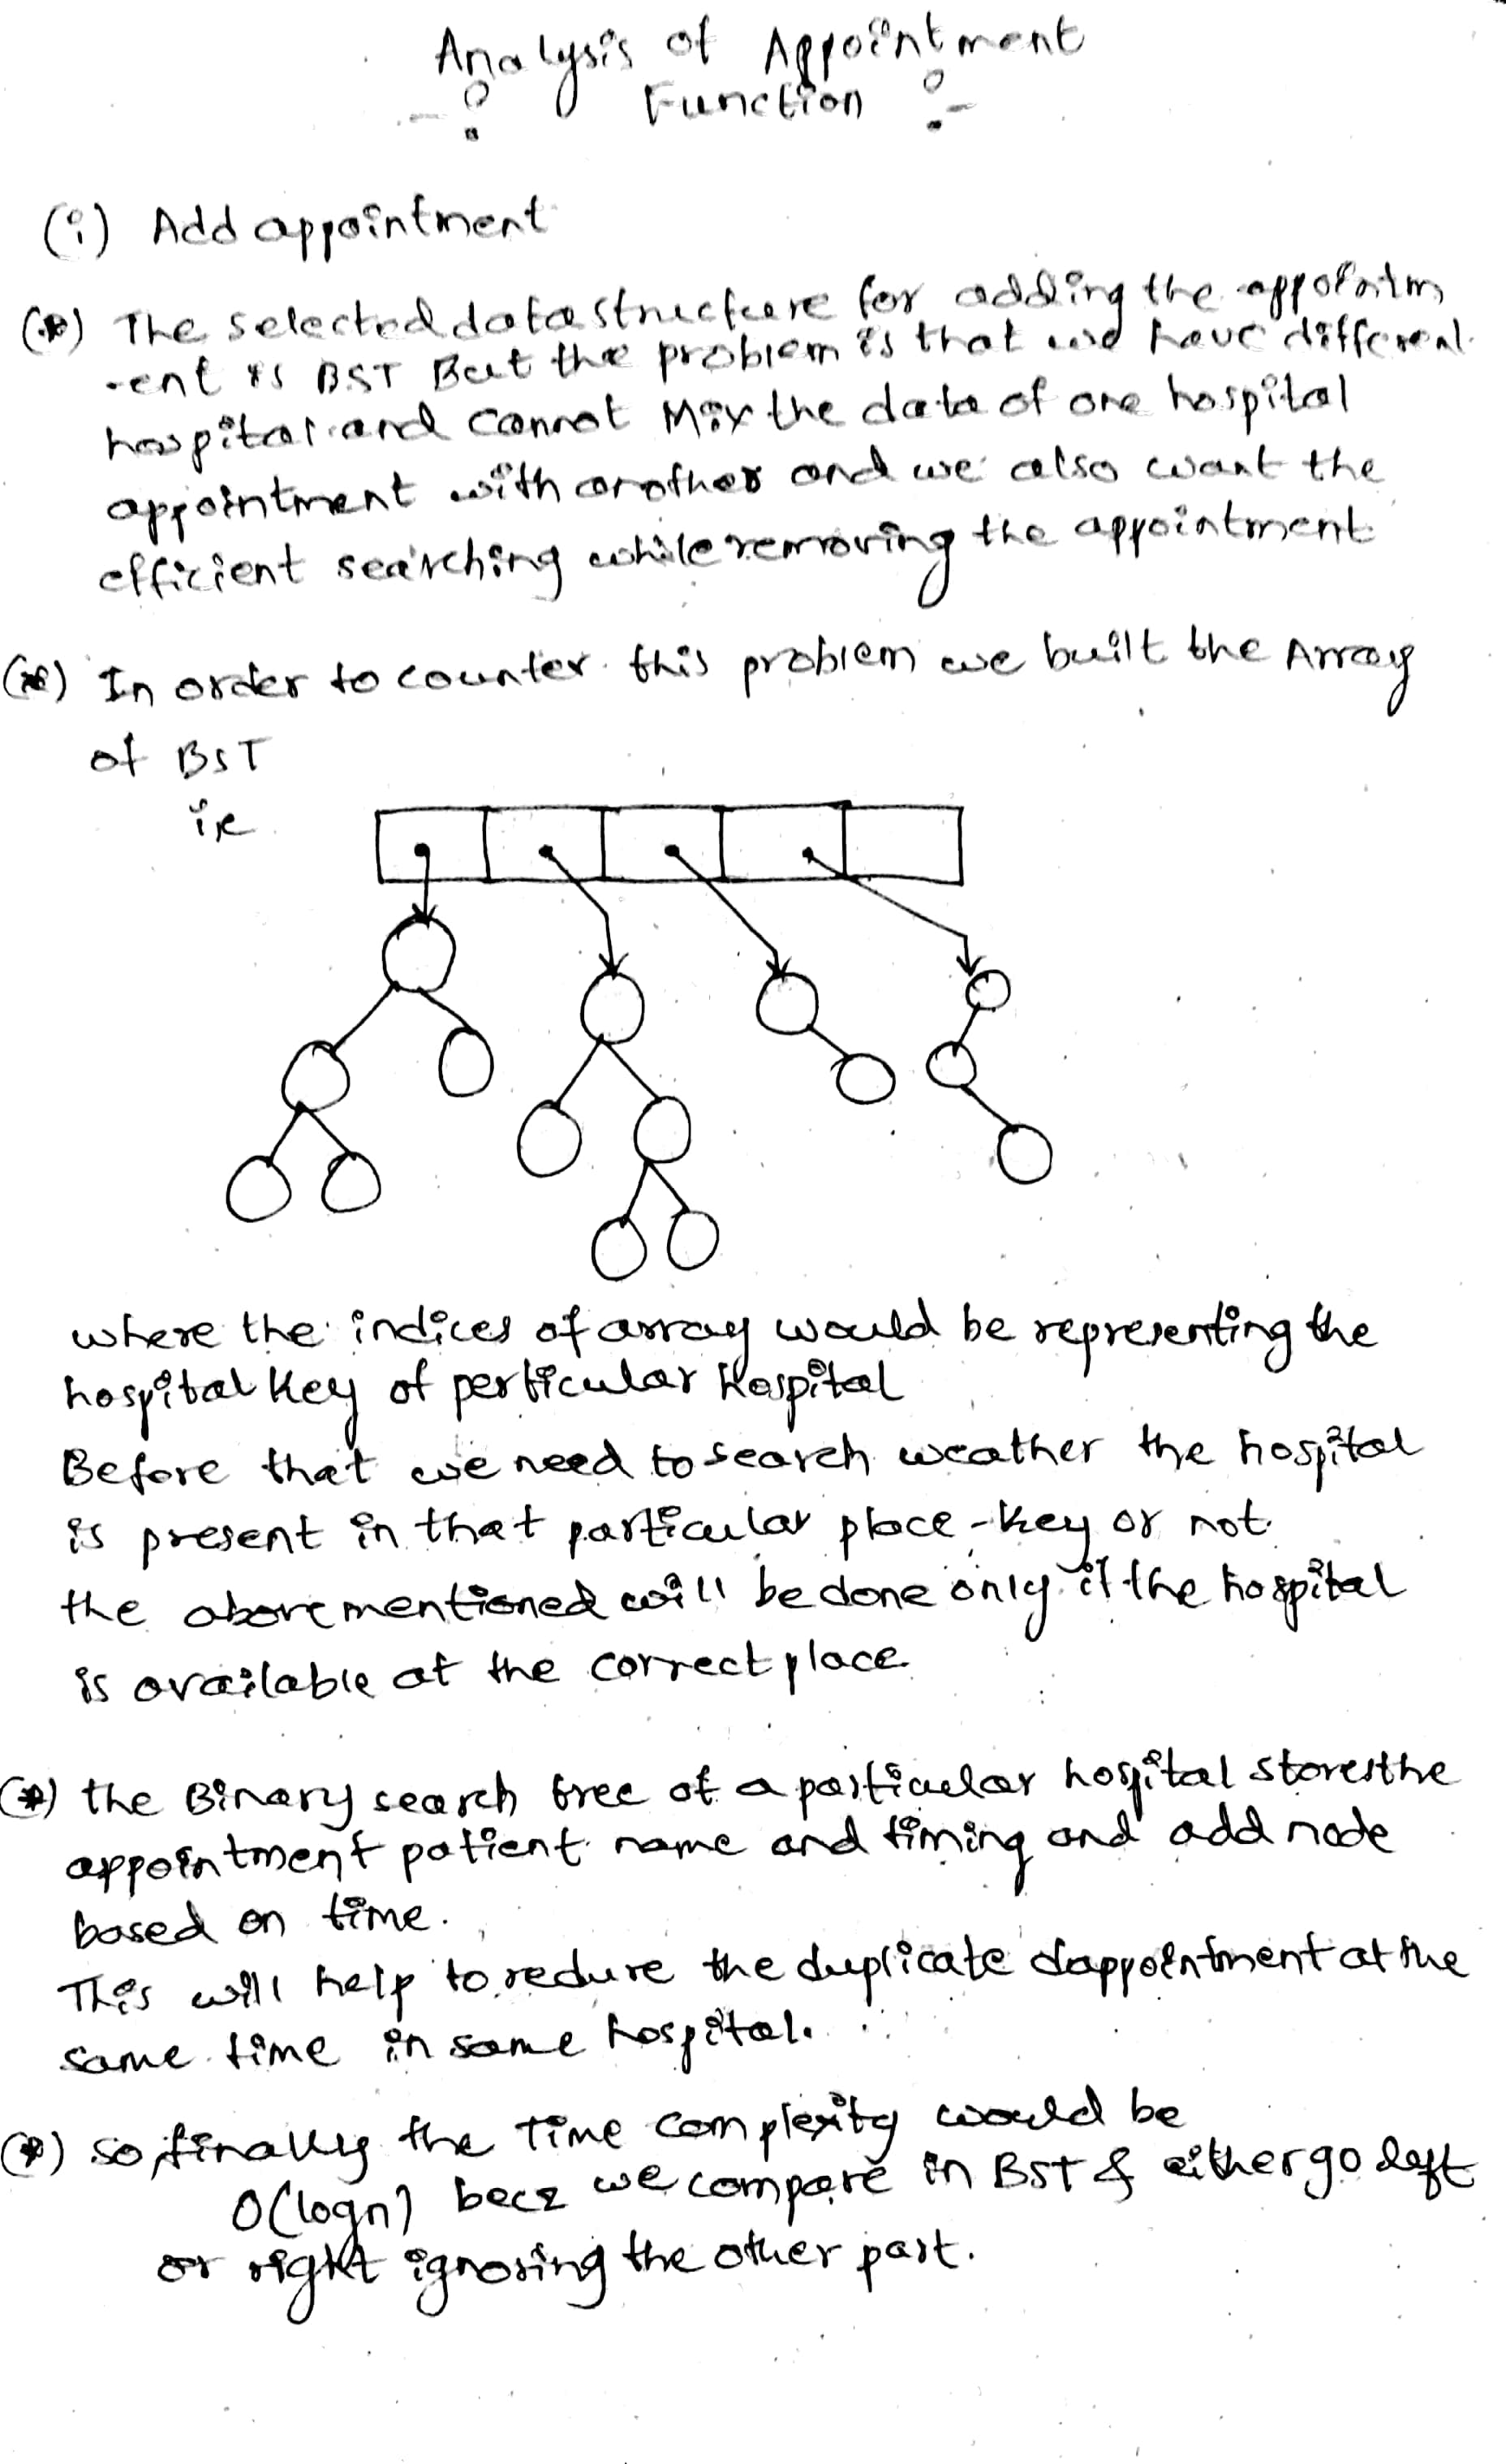 Analysis of Appointment
-: Function :-
(i) Add appointment
(*) The selected data structure for adding the appointm
-ent is BST But the problem is that we have different
hospital and cannot Mix the data of one hospital
appointment with another and we also want the
efficient searching while removing the appointment
(*) In order to counter this problem we built the Array
of BST
ie
where the indices of array would be representing the
hospital key of perticular hospital
Before that we need to search weather the hospital
is present in that particular place-key or not.
the above mentioned will be done only if the hospital
is available at the correct place.
(*) the Binary search tree of a particular hospital stores the
appointment patient name and timing and add node
based on time.
This will help to redure the duplicate dappointment at the
same time in same hospital.
(*) so, finally the Time complexity would be
O(logn) becz we compare in BST & either go left
or right ignoring the other part.